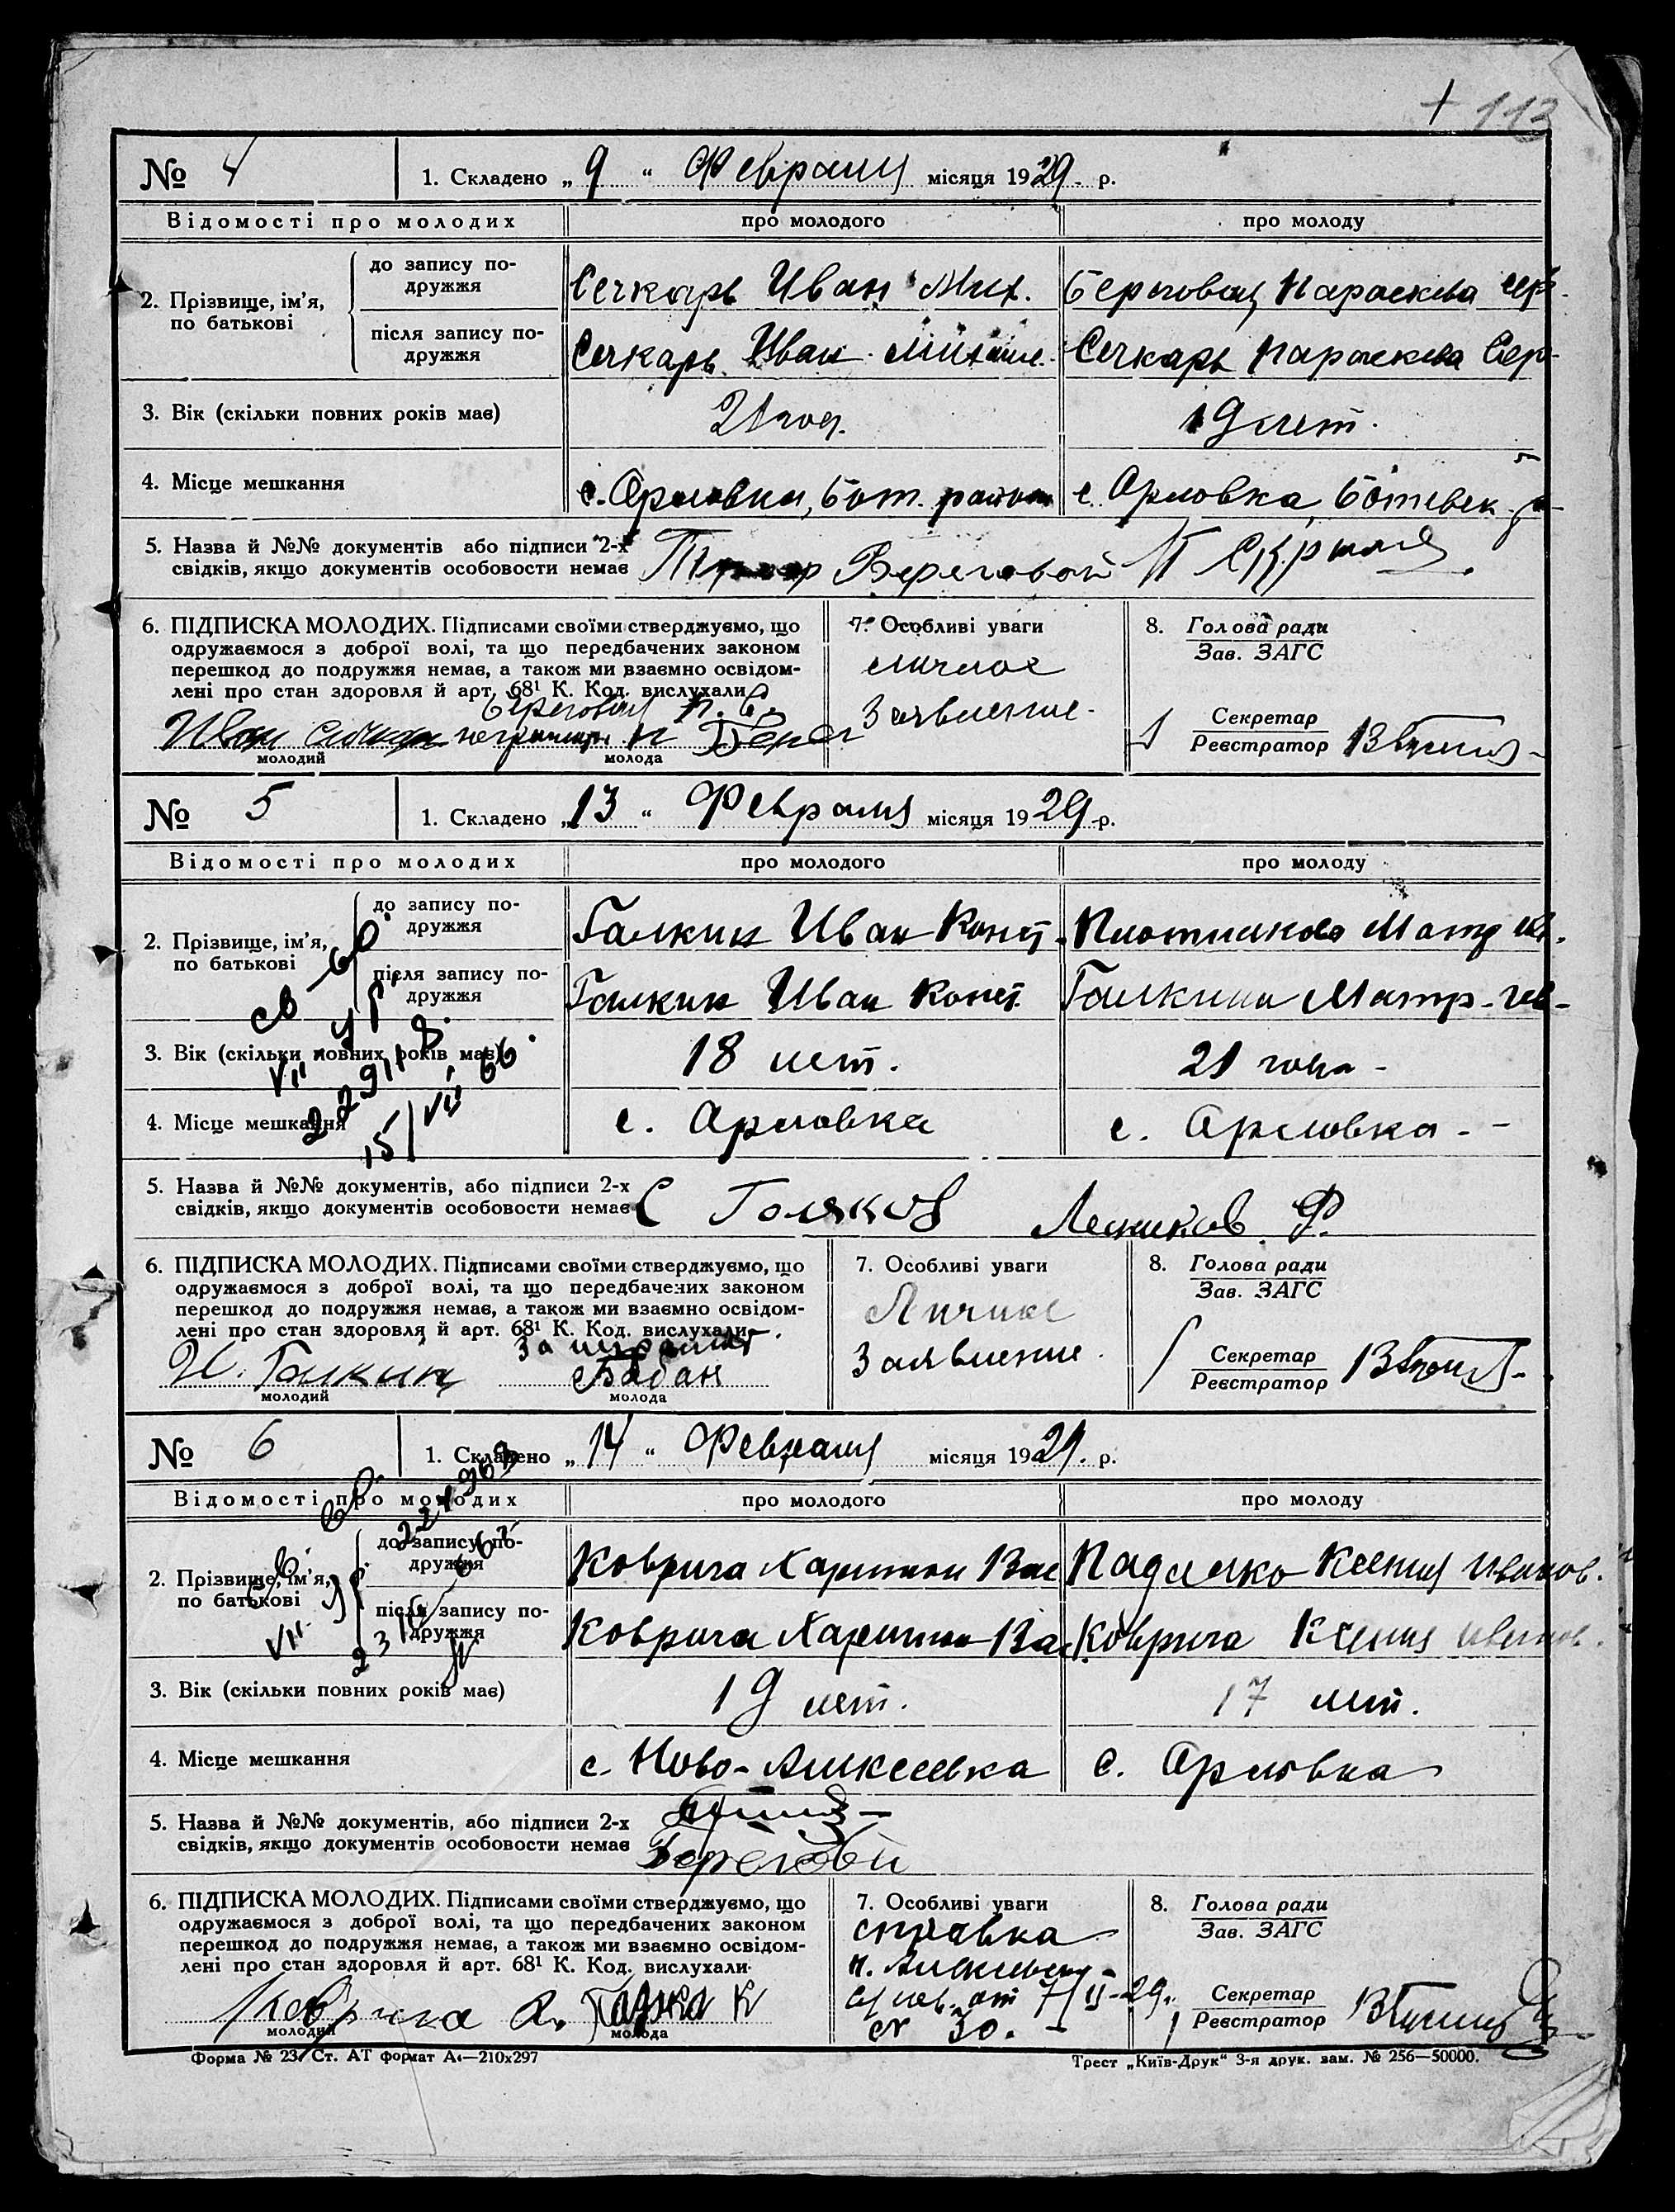 + 113
№ 4 1. Складено „ 9 “ Февраля місяця 1929 р.
Відомості про молодих про молодого про молоду
2. Прізвище, ім’я, по батькові
до запису подружжя Сечкарь Иван Мих. Береговая Параскева Сер.
після запису подружжя Сечкарь Иван Михаил. Сечкарь Параскева Сер-
3. Вік (скільки повних років має) 21 год. 19 лет.
4. Місце мешкання с. Орловки, Бот. район с. Орловка, Ботиевск.
5. Назва й №№ документів або підписи 2-х
свідків, якщо документів особовости немає Береговой
6. ПІДПИСКА МОЛОДИХ. Підписами своїми стверджуємо, що 7. Особливі уваги 8. Голова ради
одружаємося з доброї волі, та що передбачених законом Зав. ЗАГС
перешкод до подружжя немає, а також ми взаємно освідом- личное
лені про стан здоровля й арт. 68¹ К. Код. вислухали
Береговая П. С. заявление. Секретар
Иван Реєстратор
молодий молода
№ 5 1. Складено „ 13 “ Февраля місяця 1929 р.
Відомості про молодих про молодого про молоду
2. Прізвище, ім’я, по батькові
до запису подружжя Галкин Иван Конст. Плотникова Матр. Ив.
після запису подружжя Галкин Иван Конст. Галкина Матр. Ив-
3. Вік (скільки повних років має) 18 лет. 21 года -
4. Місце мешкання с. Орловка с. Орловка - -
15/VII 66.
5. Назва й №№ документів, або підписи 2-х
свідків, якщо документів особовости немає С Голяков Ф.
6. ПІДПИСКА МОЛОДИХ. Підписами своїми стверджуємо, що 7. Особливі уваги 8. Голова ради
одружаємося з доброї волі, та що передбачених законом Зав. ЗАГС
перешкод до подружжя немає, а також ми взаємно освідом- Личное
лені про стан здоровля й арт. 68¹ К. Код. вислухали
За неграмот. Заявление. Секретар
И. Галкин Бабан Реєстратор
молодий молода
№ 6 1. Складено „ 14 “ Февраля місяця 1929. р.
Відомості про молодих про молодого про молоду
2. Прізвище, ім’я, по батькові
до запису подружжя Коврига Харитон Вас Падалко Ксения Иванов.
після запису подружжя Коврига Харитон Вас Коврига Ксения Иванов.
3. Вік (скільки повних років має) 19 лет. 17 лет.
4. Місце мешкання с. Ново-Алексеевка с. Орловка
5. Назва й №№ документів, або підписи 2-х
свідків, якщо документів особовости немає
6. ПІДПИСКА МОЛОДИХ. Підписами своїми стверджуємо, що 7. Особливі уваги 8. Голова ради
одружаємося з доброї волі, та що передбачених законом справка Зав. ЗАГС
перешкод до подружжя немає, а також ми взаємно освідом-
лені про стан здоровля й арт. 68¹ К. Код. вислухали
от 7/II-29. Секретар
Коврига № 30. - Реєстратор
молодий молода
Форма № 23. Ст. АТ формат А₄—210х297 Трест „Київ-Друк“ 3-я друк. зам. № 256—50000.